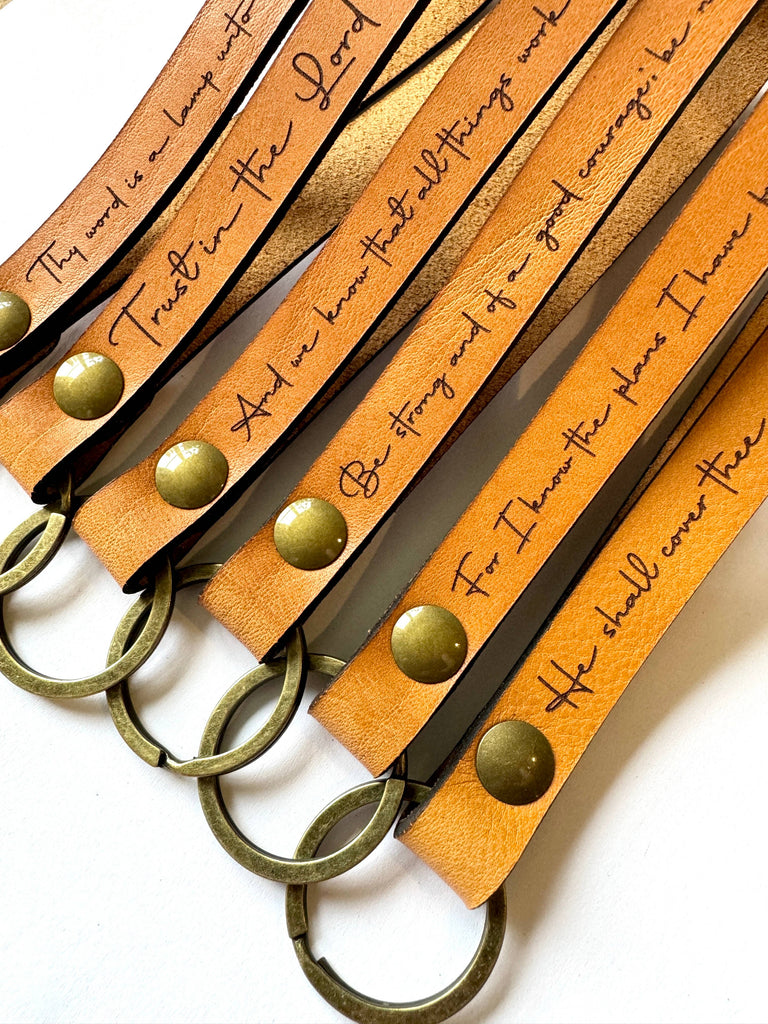 Thy word is a lamp unto
Trust in the Lord
And we know that all things work
Be strong and of a good courage; be
For I know the plans I have
He shall cover thee